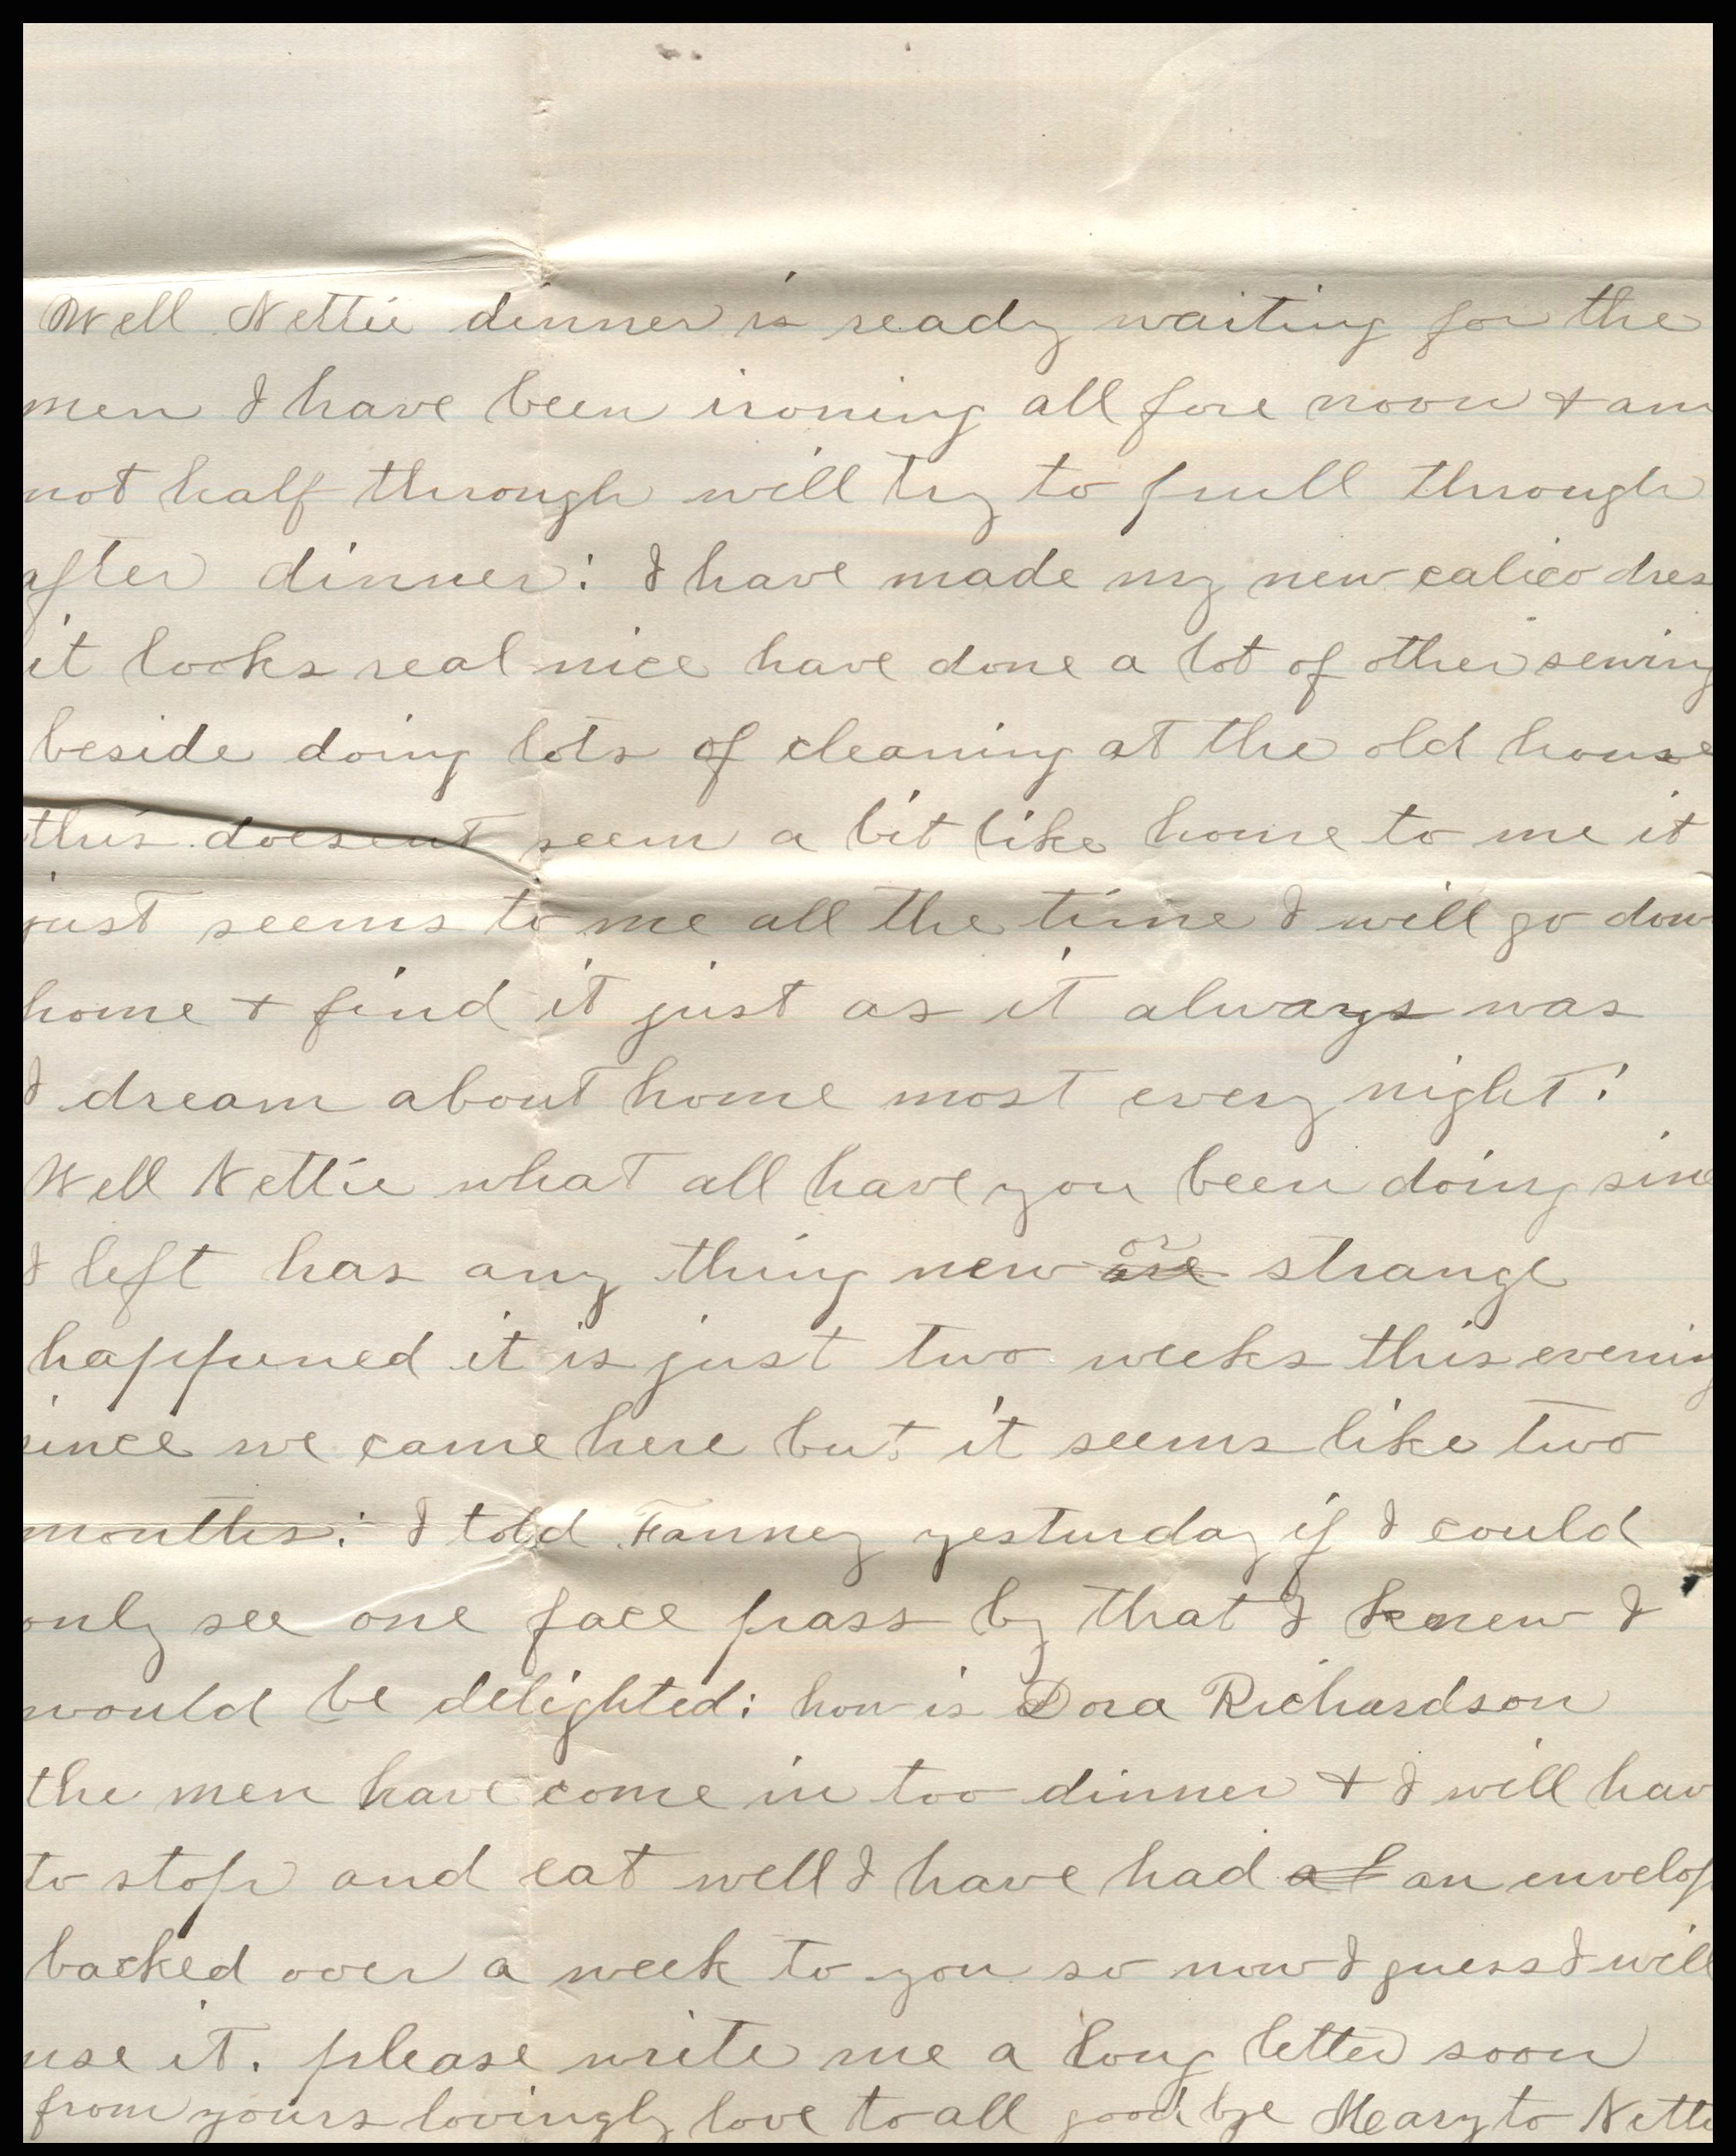 Well Nettie dinner is ready waiting for the
men I have been ironing all fore noon + am
not half through will try to pull through
after dinner: I have made my new calico dres
it looks real nice have done a lot of other sewing
beside doing lots of cleaning at the old house
this doesent seem a bit like home to me it
just seems to me all the time I will go dow
home + find it just as it always was
I dream about home most every night:
Well Nettie what all have you been doing sinc
I left has any thing new or are strange
happened it is just two weeks this evening
since we came here but it seems like two
months: I told Fanney yesturday if I could
only see one face pass by that I knew I
would be delighted: how is Dora Richardson
the men have come in too dinner + I will hav
to stop and eat well I have had an envelop
backed over a week to you so now I guess I will
use it. please write me a long letter soon
from yours lovingly love to all good bye Mary to Nettie